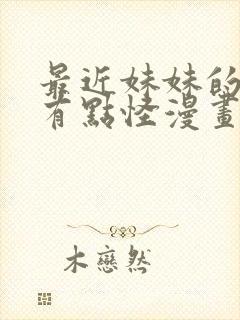 最近妹妹的
有點怪漫畫
木戀然